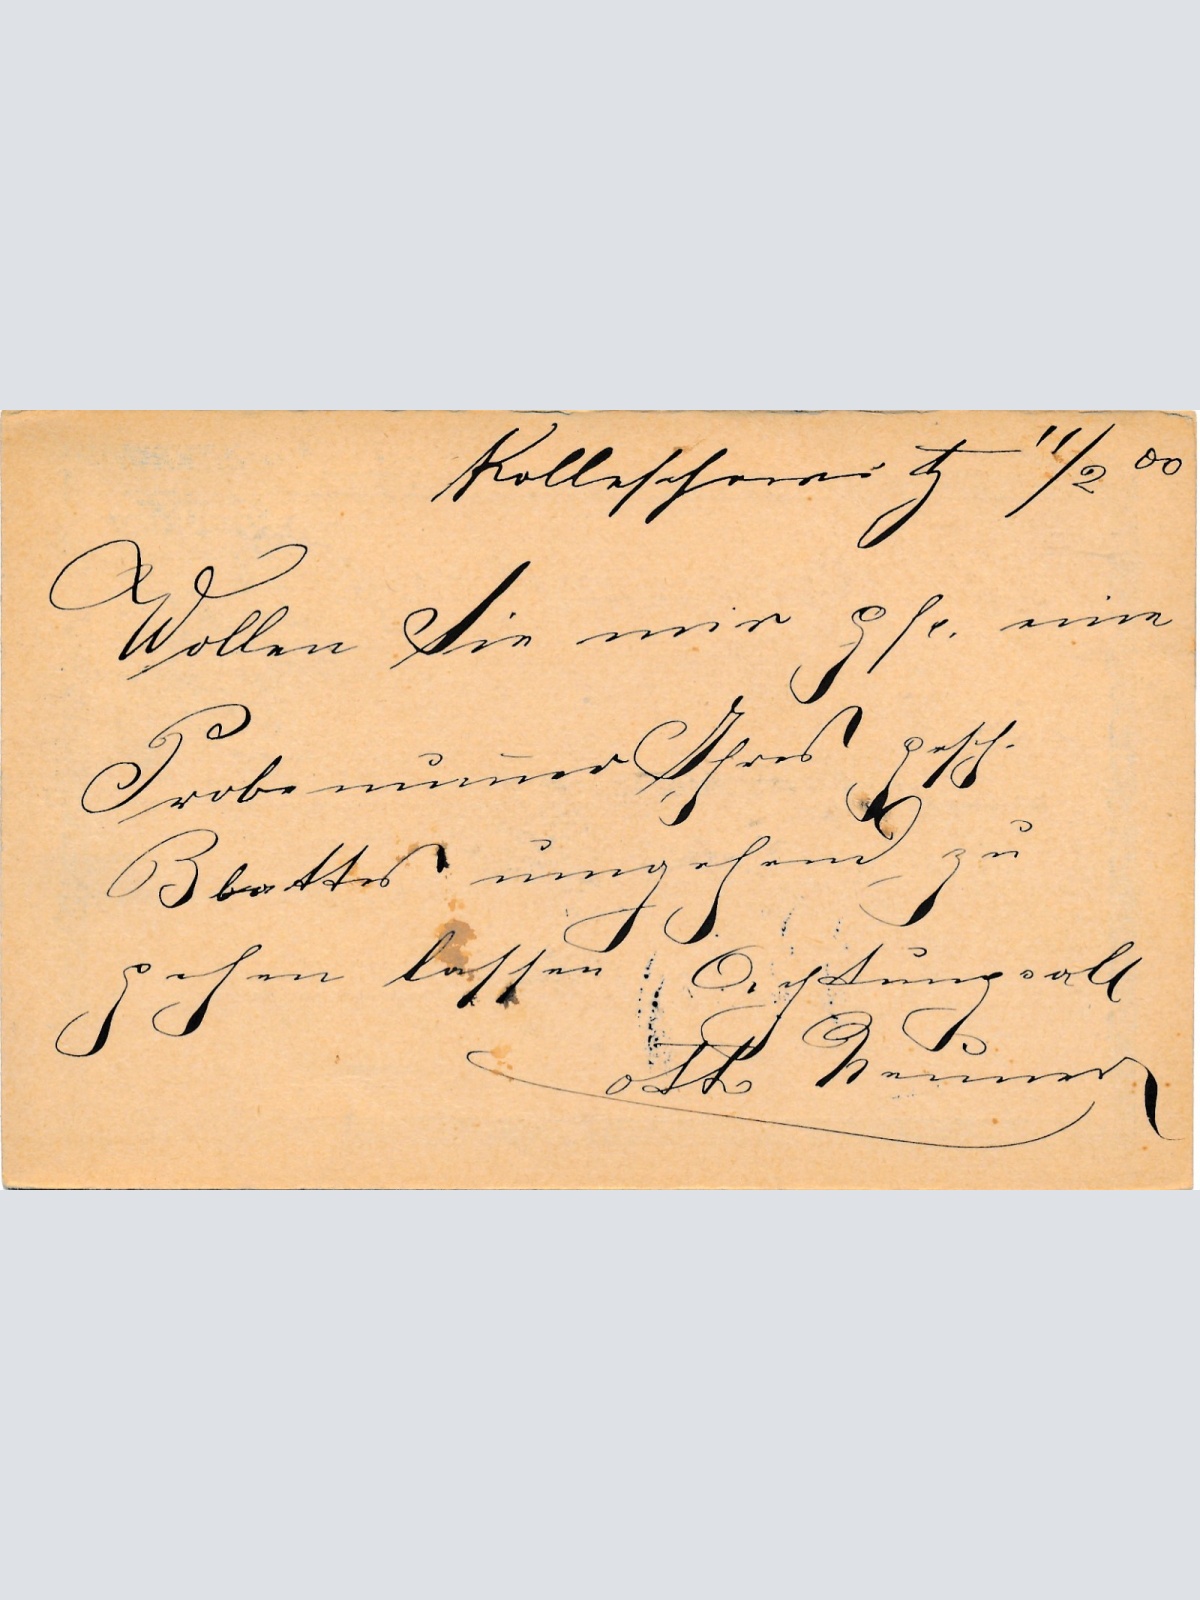 Kolleschowitz 11/2 00
Wollen Sie mir gfl. eine
Probenum̄er Ihres gesch.
Blattes umgehend zu
gehen lassen Achtungsvoll
Otto